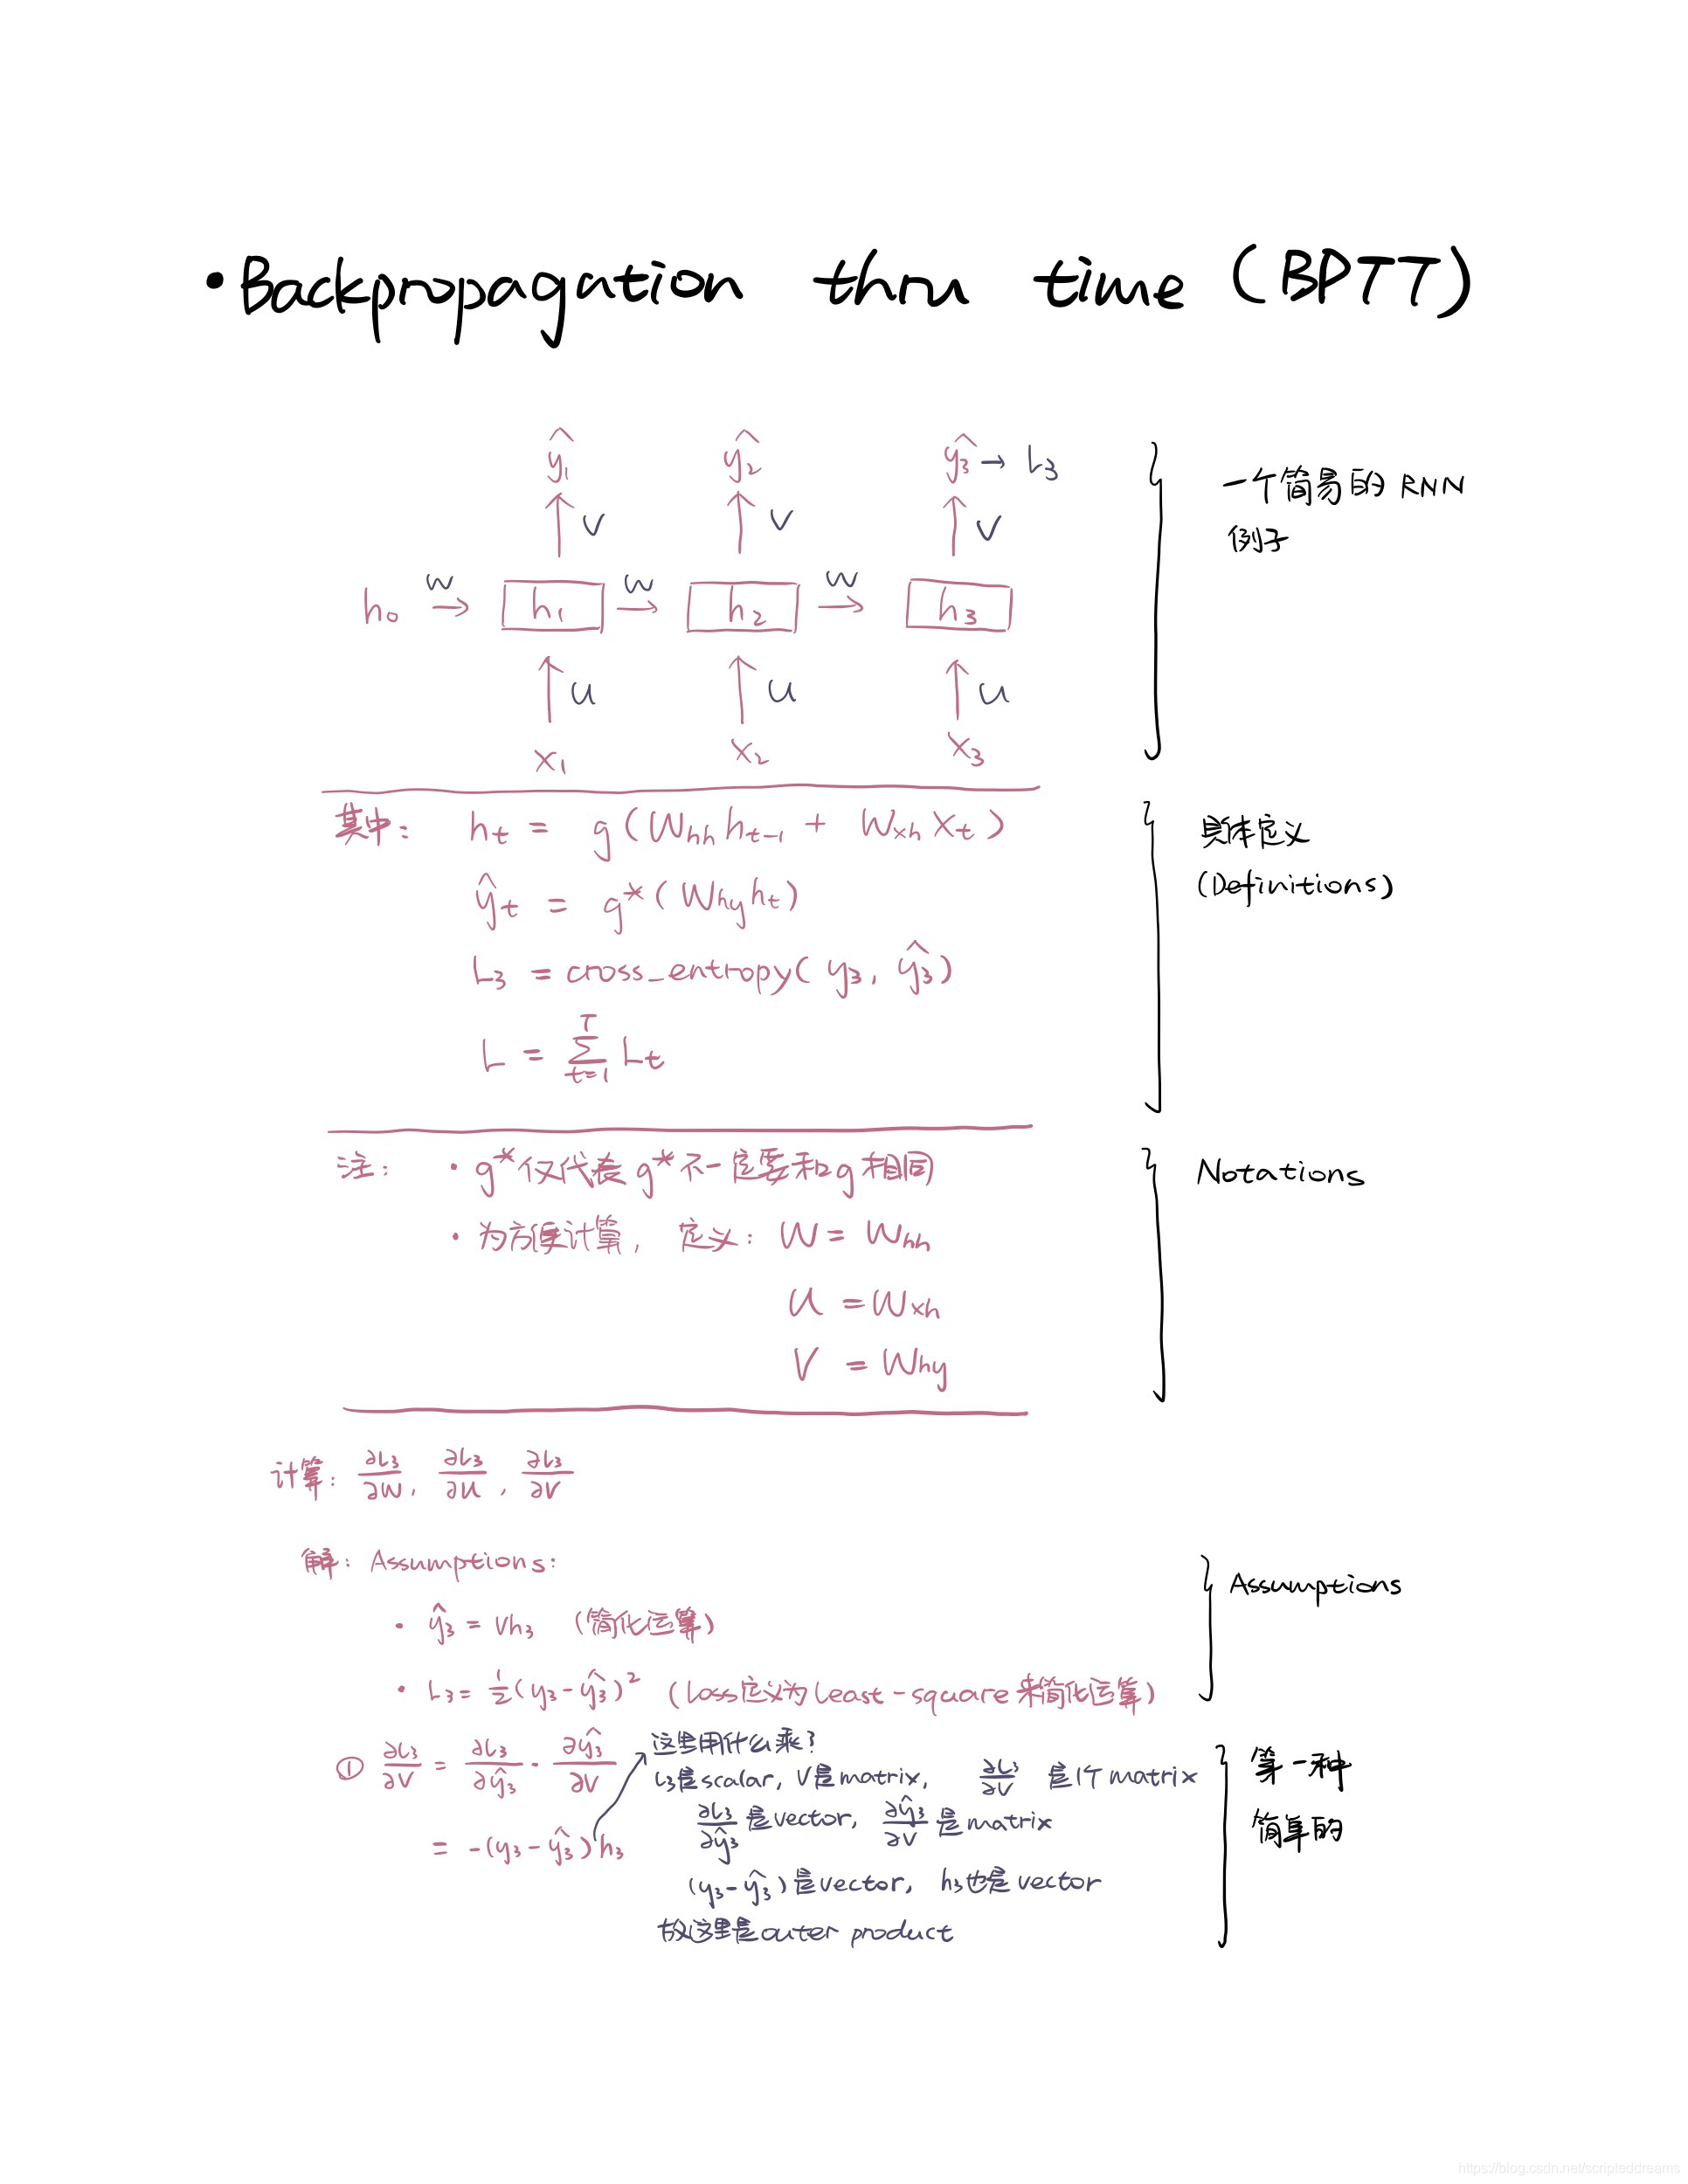 • Backpropagation thru time (BPTT)
ŷ₁ ŷ₂ ŷ₃ → L₃
↑ V ↑ V ↑ V
h₀ →W h₁ →W h₂ →W h₃
↑ U ↑ U ↑ U
x₁ x₂ x₃
一个简易的 RNN
例子
其中: hₜ = g(W_hh hₜ₋₁ + W_xh Xₜ)
ŷₜ = g*(W_hy hₜ)
L₃ = cross_entropy(y₃, ŷ₃)
L = Σ_{t=1}^{T} Lₜ
具体定义
(Definitions)
注: • g*仅代表 g*不一定要和g相同
• 为方便计算, 定义: W = W_hh
U = W_xh
V = W_hy
Notations
计算: ∂L₃/∂W, ∂L₃/∂U, ∂L₃/∂V
解: Assumptions:
• ŷ₃ = Vh₃ (简化运算)
• L₃ = ½(y₃-ŷ₃)² (Loss定义为least-square来简化运算)
Assumptions
① ∂L₃/∂V = ∂L₃/∂ŷ₃ · ∂ŷ₃/∂V
= -(y₃-ŷ₃)h₃
这里用什么乘?
L₃是scalar, V是matrix, ∂L₃/∂V 是1个matrix
∂L₃/∂ŷ₃ 是vector, ∂ŷ₃/∂V 是matrix
(y₃-ŷ₃)是vector, h₃也是vector
故这里是outer product
第一种
简单的
https://blog.csdn.net/scripteddreams